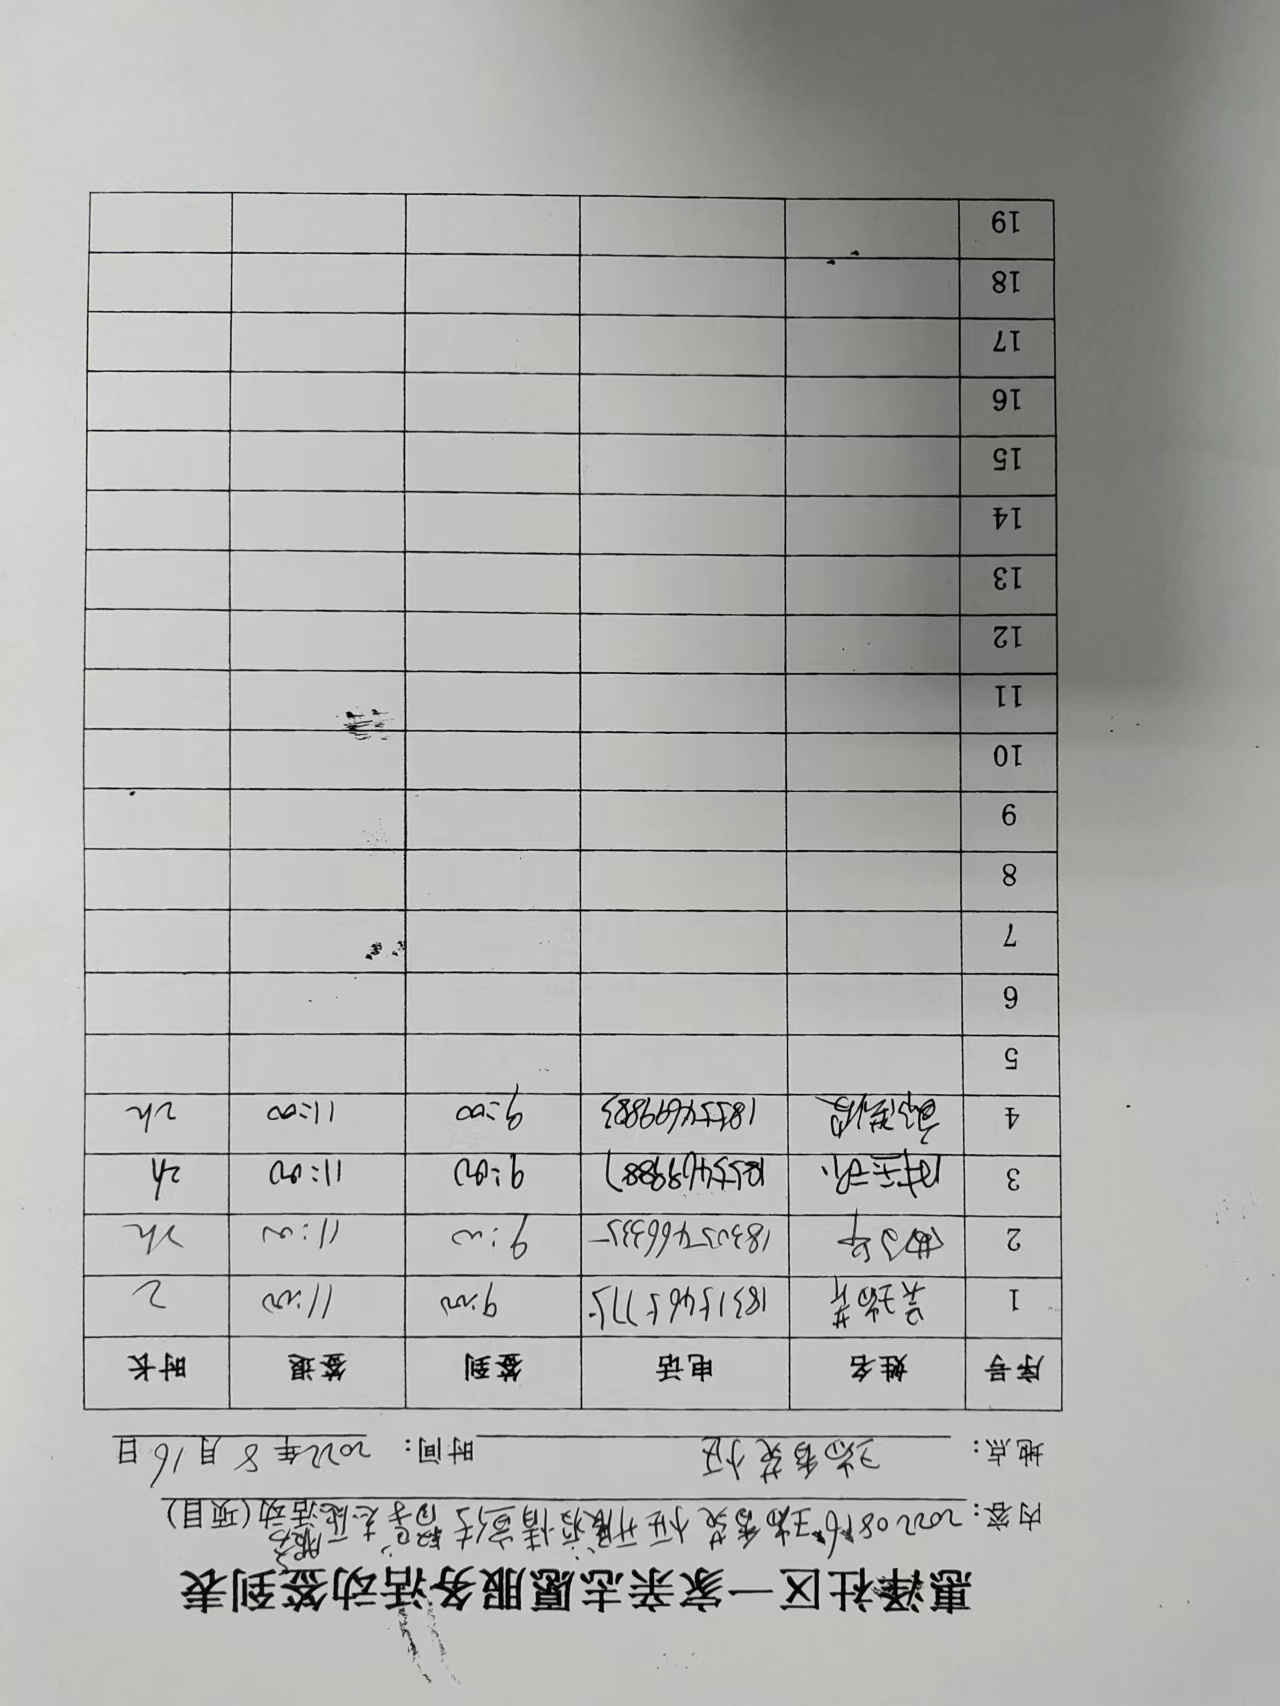 惠泽社区一家亲志愿服务活动签到表
内容：20220816 开展疫情宣传 志愿服务活动（项目）
地点： 小区 时间：2022年8月16日
序号 姓名 电话 签到 签退 时长
1 18315465775 9:00 11:00 2
2 18305466335 9:00 11:00 2h
3 18554699887 9:00 11:00 2h
4 18554699883 9:00 11:00 2h
5
6
7
8
9
10
11
12
13
14
15
16
17
18
19